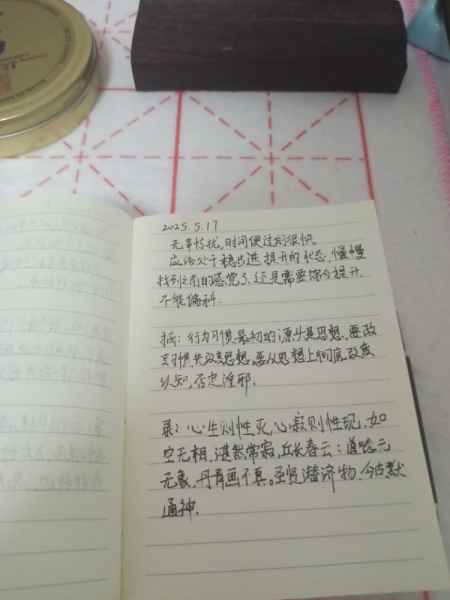 2025.5.17
无事忧扰,时间便过的很快。
应当处于稳步进提升的状态,慢慢
找到之前的感觉了,还是需要综合提升,
不能偏科.
摘:行为习惯最初的源头是思想,要改
变习惯先改变思想。要从思想上彻底改变
认知,否定淫邪.
录:心生则性灭,心寂则性现,如
空无相,湛然常寂,丘长春云:道念元
无象,丹青画不真。圣贤潜济物,今古默
通神.